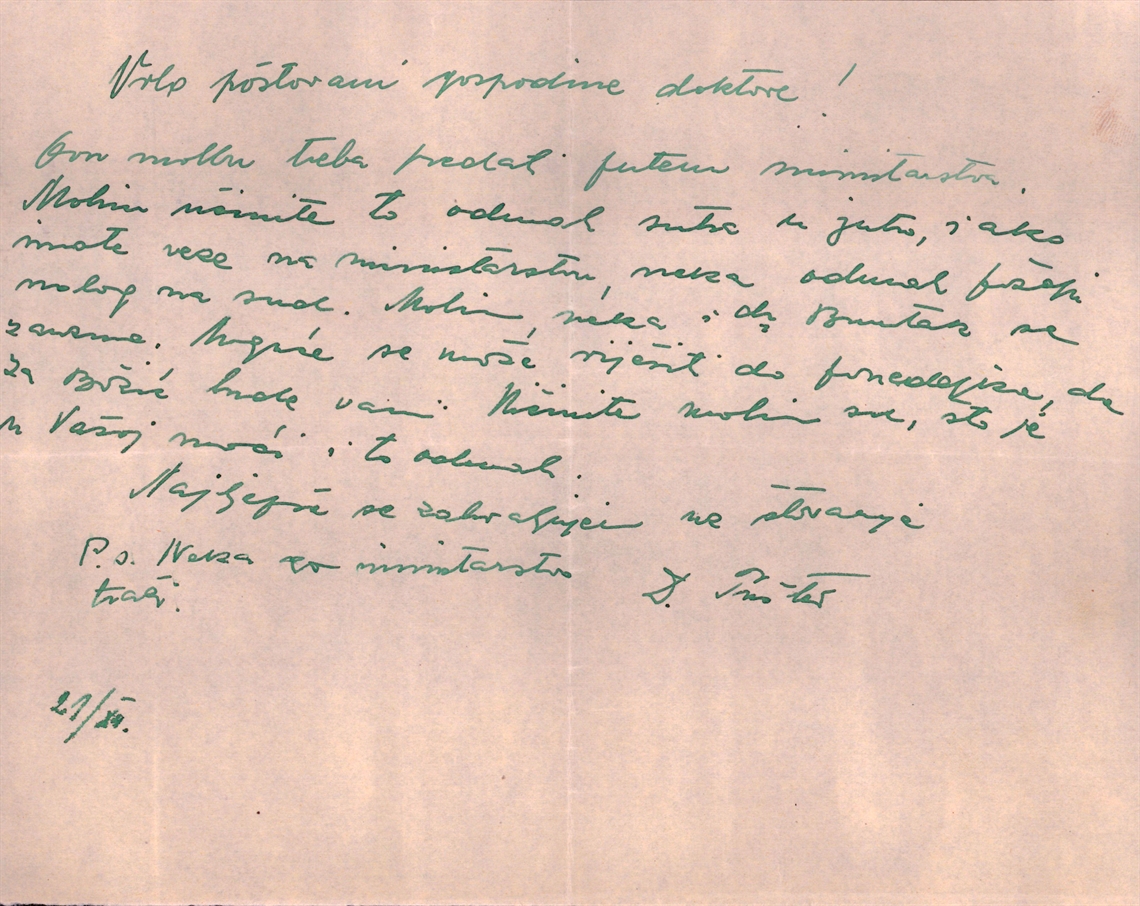 Vrlo poštovani gospodine doktore!
Ovu molbu treba predati putem ministarstva.
Molim učinite to odmah sutra u jutro, i ako
imate veze na ministarstvu, neka odmah požuri
nalog na sud. Molim, neka i dr Buntak se
zauzme. Moguće se može riješiti do ponedeljka, da
za Božić bude vani. Učinite molim sve, što je
u Vašoj moći i to odmah.
Najljepše se zahvaljujem uz štovanje
P.s. Neka ga ministarstvo
traži.
D.
21/XII.